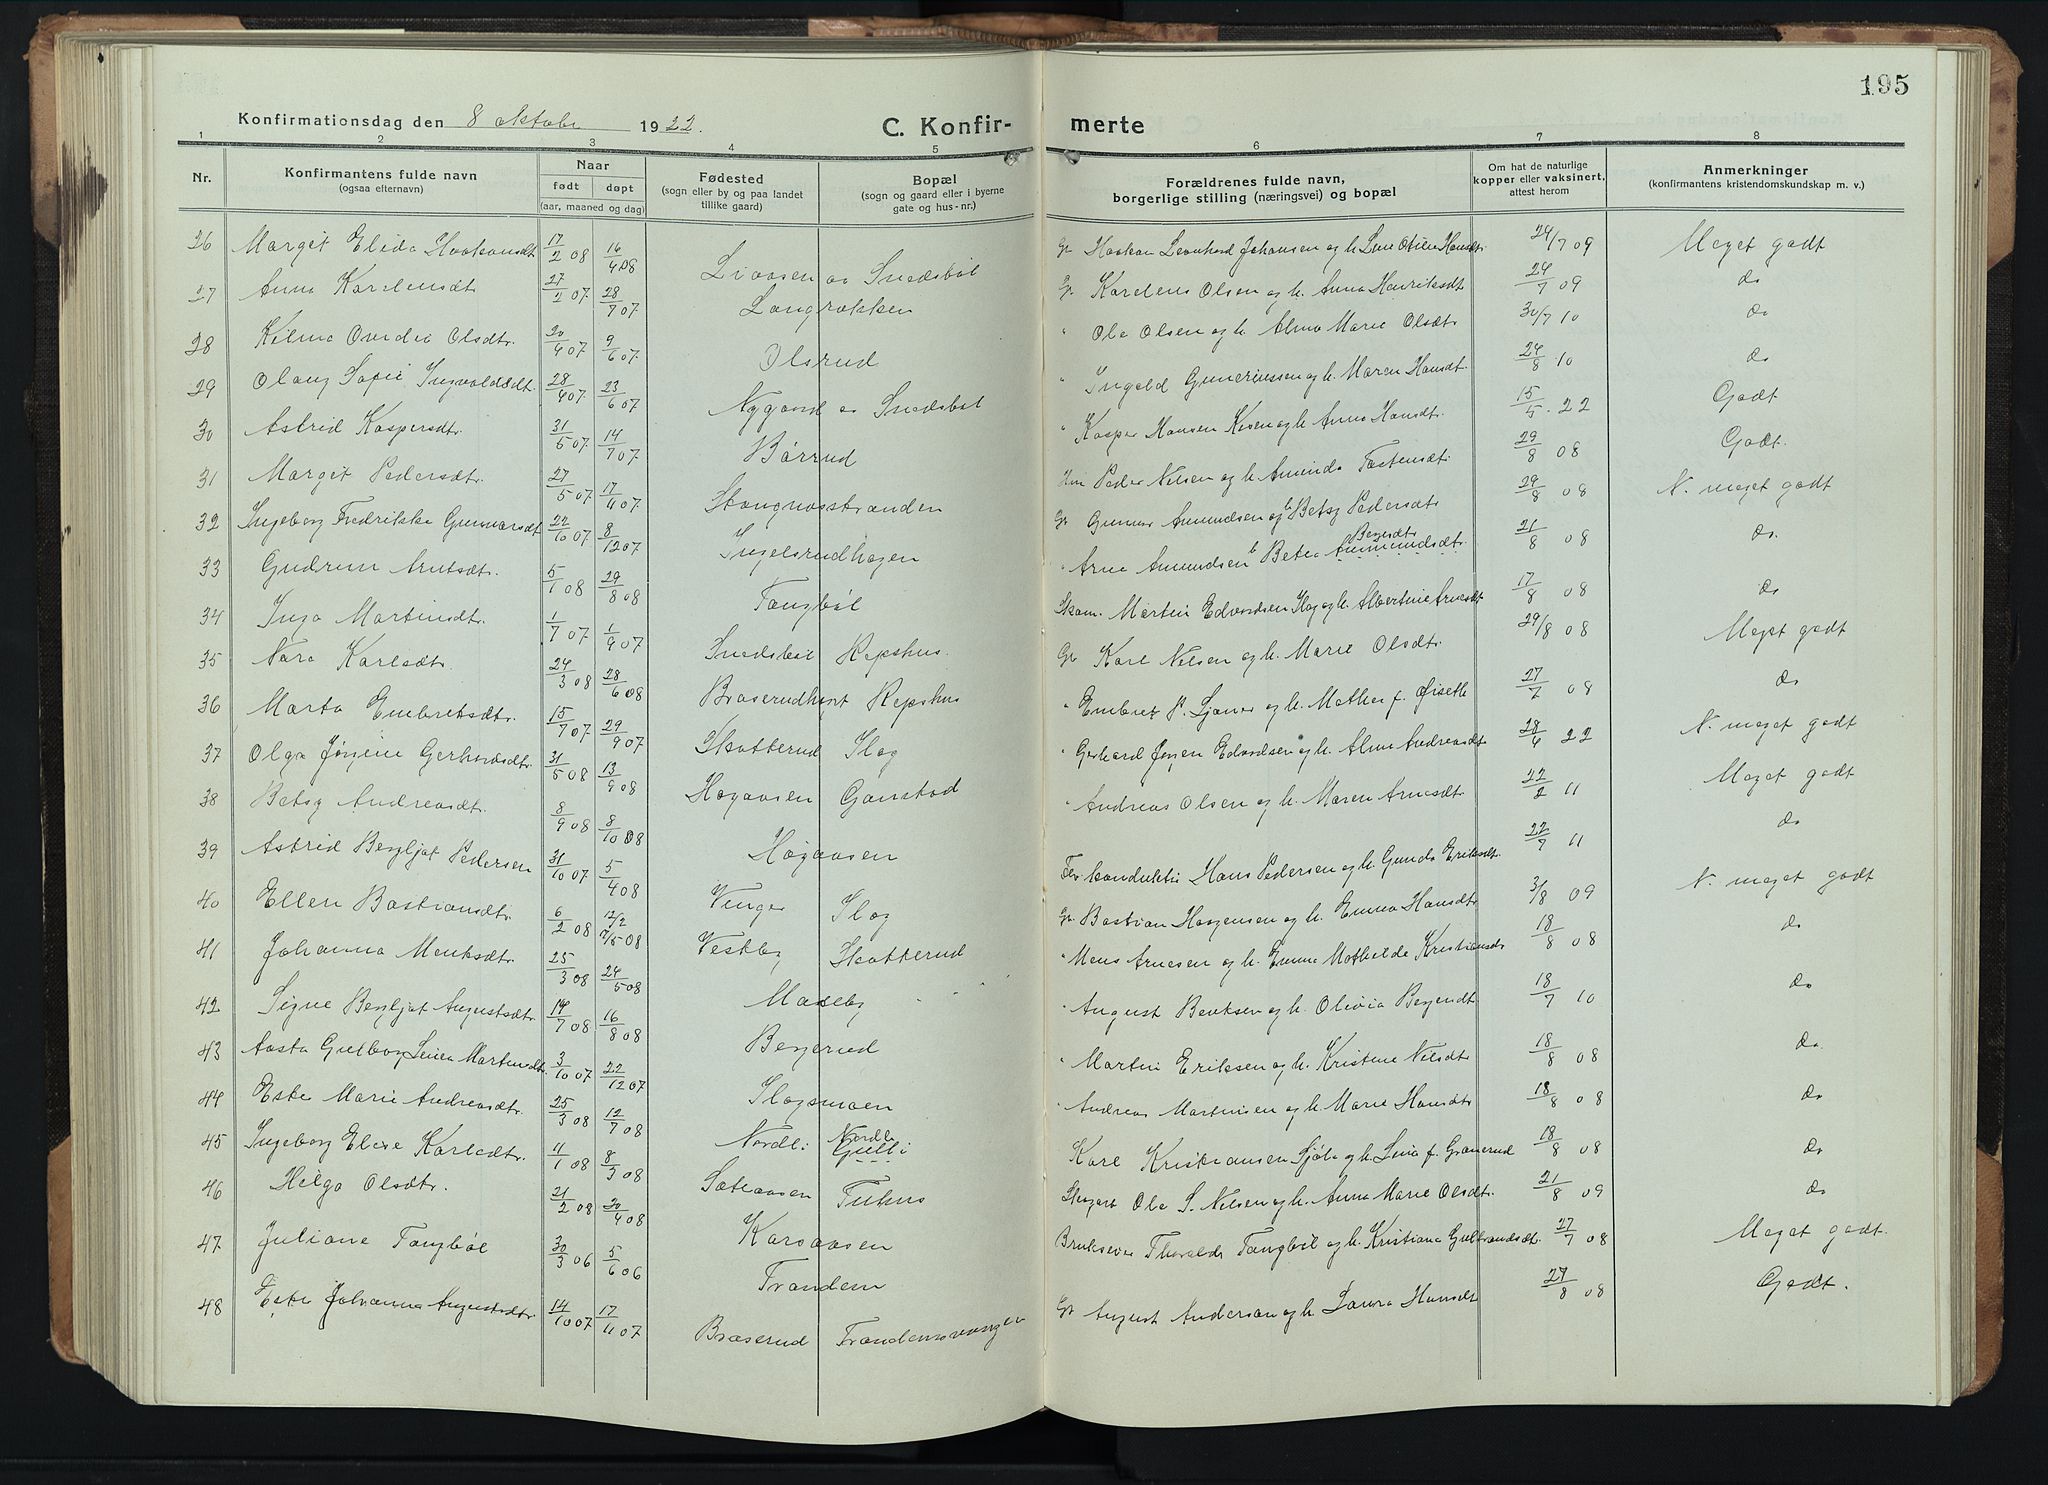 195
Konfirmationsdag den 8 oktobe 1922.
C. Konfir-
merte
1 2 3 4 5 6 7 8
Nr.
Konfirmantens fulde navn
(ogsaa efternavn)
Naar
født døpt
(aar, maaned og dag)
Fødested
(sogn eller by og paa landet
tillike gaard)
Bopæl
(sogn og gaard eller i byerne
gate og hus-nr.)
Forældrenes fulde navn,
borgerlige stilling (næringsvei) og bopæl
Om hat de naturlige
kopper eller vaksinert,
attest herom
Anmerkninger
(konfirmantens kristendomskundskap m. v.)
26 Margit Elida Haakonsdt 17/2 08 16/4 08 Liaasen av Snedsbøl Gr Haakon Leonhard Johansen og h. Line Otine Hansdt. 24/7 09 Meget godt
27 Anna Karelensdt 27/2 07 28/7 07 Langrækken Gr Karelens Olsen og h. Anna Henriksdt 24/7 09 do
28 Hilma Ovedie Olsdtr. 20/4 07 9/6 07 Olsrud " Ole Olsen og h. Alma Marie Olsdtr 30/7 10 do
29 Olaug Sofie Ingvaldsdt. 28/4 07 23/6 07 Nygaard av Snedsbøl " Ingvald Guneriussen og h. Maren Hansdt. 24/8 10 do
30 Astrid Kaspersdtr. 31/5 07 14/7 07 Børrud " Kasper Hansen og h. Anna Hansdtr. 15/5. 22 Godt
31 Margit Pedersdtr. 27/5 07 17/11 07 Skangnæsstranden Hm Peder Nilsen og h. Aminda Tostensdt. 29/8 08 Godt.
32 Ingeborg Fredrikke Gunnarsdt 22/10 07 8/12 07 Ingelsrudhagen Gr Gunnar Amundsen og h Betsy Pedersdtr 29/8 08 N. meget godt
33 Gudrun Arntsdtr. 5/1 08 29/8 08 Tangbøl " Arne Amundsen h Betea Amundsdtr. Bersdtr 21/8 08 do.
34 Inga Martinsdtr. 1/7 07 1/9 07 Snedsbøl Repshus. Skom. Martin Edvardsen Slog og h. Albertine Arnesdt 17/8 08 do
35 Nora Karlsdtr. 24/3 08 28/6 08 Braserudhynt Repshus Gr Karl Nilsen og h. Marie Olsdtr 29/8 08 Meget godt
36 Marta Embretsdtr. 15/7 07 29/9 07 Skotterud Slog " Embret P. Sjøner og h. Mathea f. Øiseth 27/7 08 do
37 Olga Jørgine Gerhardsdtr. 31/5 08 13/9 08 Høgaasen Gaustad " Gerhard Jørgen Edvardsen og h. Alma Andreasdt 28/4 22 N. meget godt
38 Betsy Andreasdtr. 8/9 08 8/10 08 Høgaasen " Andreas Olsen og h. Maren Arnesdtr 22/2 11 Meget godt
39 Astrid Bergljot Pedersen 31/10 07 5/4 08 Vinger Slog konduktør Hans Pedersen og h. Gunda Eriksdt. 22/7 11 do
40 Ellen Bastiansdtr. 6/2 08 12/2 7/5 08 Vestby Skotterud Gr. Bastian Haagensen og h. Emma Hansdtr 3/8 09 N. meget godt
41 Johanna Mentsdtr. 25/3 08 24/5 08 Masseby " " Mens Arnesen og h. Emma Mathilde Kristiansdt 18/8 08 do
42 Signe Bergljot Augustsdtr. 14/7 08 16/8 08 Bergerud " August Bentsen og h. Olivia Bergendt 18/7 10 do
43 Aasta Gulborg Leiva Martinsdtr. 3/10 07 22/12 07 Slogsmoen " Martin Eriksen og h. Kristine Nilsdtr 18/8 08 do.
44 Este Marie Andreasdtr. 25/3 08 12/7 08 Nordli Nordli Gulli " Andreas Martinsen og h. Marie Hansdtr 18/8 08 do
45 Ingeborg Elise Karlsdtr. 11/1 08 8/3 08 Sætraasen Tuhus Karl Kristiansen Sjøli og h. Lina f. Granerud 18/8 08 do
46 Helga Olsdtr. 21/2 08 20/4 08 Karsaasen Skogarb Ole S. Nilsen og h. Anna Marie Olsdtr. 21/8 09 do
47 Juliane Tangbøl 30/3 06 5/6 06 Trandem Brukseier Thorvald Tangbøl og h. Kristiana Gulbrandsdt. 27/7 08 Meget godt.
48 Este Johanna Augustsdtr. 14/10 07 17/11 07 Braserud Trandemsvangen Gr August Anderson og h. Laura Hansdt 27/8 08 Godt.